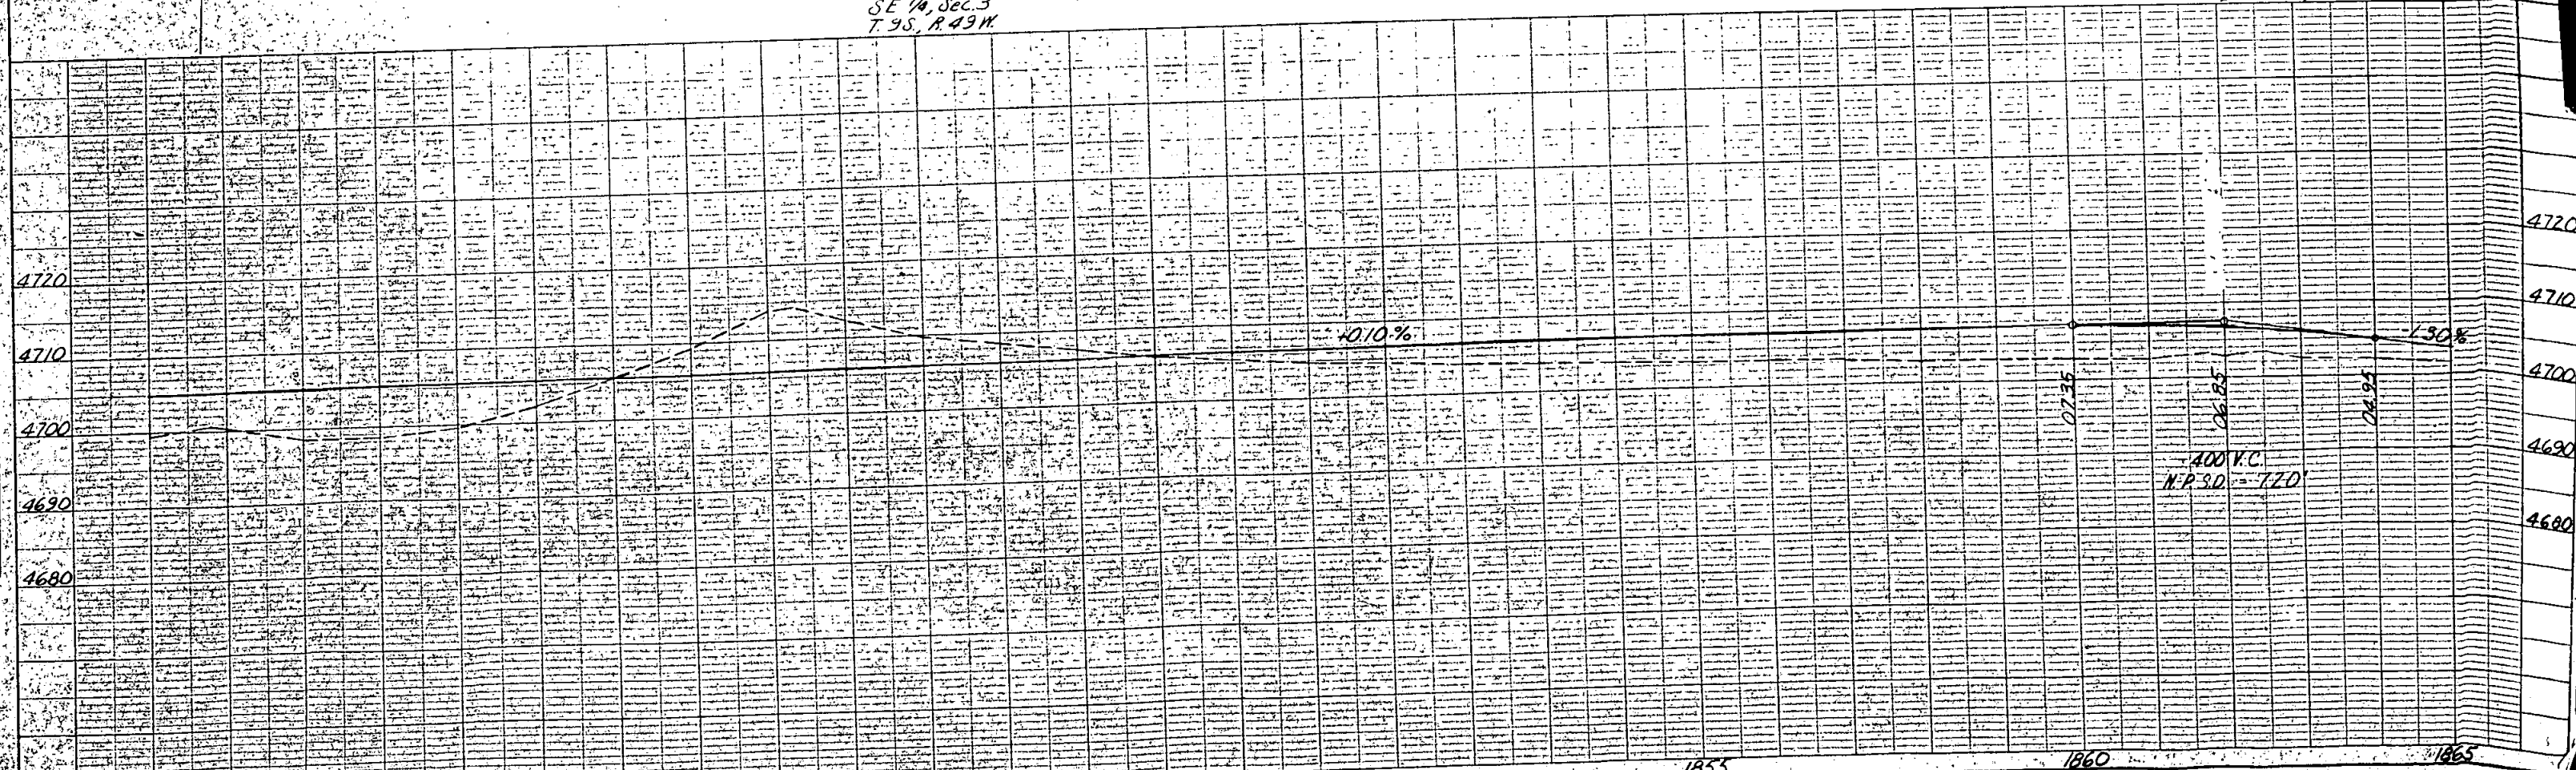 SE 1/4, Sec. 3
T. 9S., R. 49W.
4720
4710
4700
4690
4680
+0.10%
-1.30%
07.35
06.85
04.95
400' V.C.
N.P.S.D. = 720'
4720
4710
4700
4690
4680
1855
1860
1865